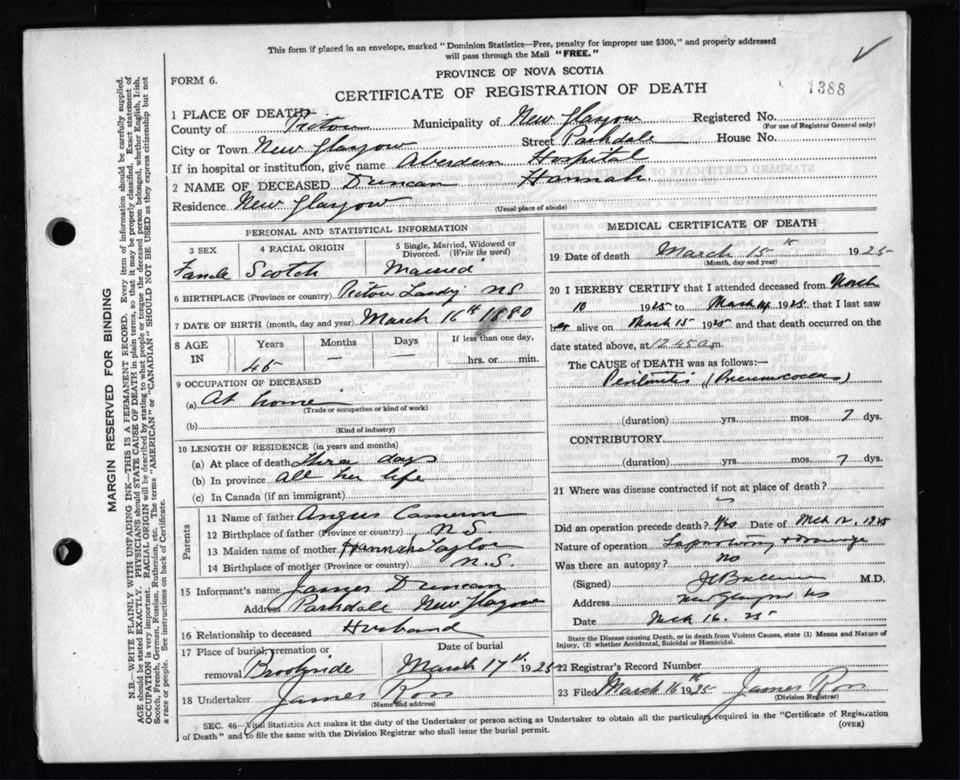 This form if placed in an envelope, marked "Dominion Statistics—Free, penalty for improper use $300," and properly addressed
will pass through the Mail "FREE."
PROVINCE OF NOVA SCOTIA
FORM 6.
CERTIFICATE OF REGISTRATION OF DEATH
1388
1 PLACE OF DEATH
County of Pictou Municipality of New Glasgow Registered No.
(For use of Registrar General only)
City or Town New Glasgow Street Parkdale House No.
If in hospital or institution, give name Aberdeen Hospital
2 NAME OF DECEASED Duncan Hannah.
Residence New Glasgow
(Usual place of abode)
PERSONAL AND STATISTICAL INFORMATION
3 SEX 4 RACIAL ORIGIN 5 Single, Married, Widowed or Divorced. (Write the word)
Female Scotch Married
6 BIRTHPLACE (Province or country) Pictou Landg NS
7 DATE OF BIRTH (month, day and year) March 16th 1880
8 AGE IN Years Months Days If less than one day, hrs. or min.
45 — —
9 OCCUPATION OF DECEASED
(a) At home
(Trade or occupation or kind of work)
(b)
(Kind of industry)
10 LENGTH OF RESIDENCE (in years and months)
(a) At place of death Three days
(b) In province All her life
(c) In Canada (if an immigrant)
Parents
11 Name of father Angus Cameron
12 Birthplace of father (Province or country) N S
13 Maiden name of mother Hannah Taylor
14 Birthplace of mother (Province or country) N.S.
15 Informant's name James Duncan
Address Parkdale New Glasgow
16 Relationship to deceased Husband
17 Place of burial, cremation or removal Brookside Date of burial March 17th 1925
18 Undertaker James Ross
(Name and address)
MEDICAL CERTIFICATE OF DEATH
19 Date of death March 15th 1925
(Month, day and year)
20 I HEREBY CERTIFY that I attended deceased from March
10 1925 to March 14 1925 that I last saw
her alive on March 15 1925 and that death occurred on the
date stated above, at 12 45 a m.
The CAUSE OF DEATH was as follows:—
Peritonitis (Pneumococcus)
(duration) yrs. mos. 7 dys.
CONTRIBUTORY
(duration) yrs. mos. 7 dys.
21 Where was disease contracted if not at place of death?
Did an operation precede death? Yes Date of Mch 12, 1925
Nature of operation Laparotomy & Drainage
Was there an autopsy? no
(Signed) M.D.
Address New Glasgow NS
Date Mch 16. 25
State the Disease causing Death, or in death from Violent Causes, state (1) Means and Nature of
Injury, (2) whether Accidental, Suicidal or Homicidal.
22 Registrar's Record Number
23 Filed March 16th 1925 James Ross
(Division Registrar)
SEC. 46—Vital Statistics Act makes it the duty of the Undertaker or person acting as Undertaker to obtain all the particulars required in the "Certificate of Registration
of Death" and to file the same with the Division Registrar who shall issue the burial permit.
(OVER)
MARGIN RESERVED FOR BINDING
N.B.—WRITE PLAINLY WITH UNFADING INK—THIS IS A PERMANENT RECORD. Every item of information should be carefully supplied.
AGE should be stated EXACTLY. PHYSICIANS should STATE CAUSE OF DEATH in plain terms, so that it may be properly classified. Exact statement of
OCCUPATION is very important. RACIAL ORIGIN will be described by stating to what people or tongue the deceased person belonged, whether English, Irish,
Scotch, French, German, Russian, Ruthenian, etc. The terms "AMERICAN" or "CANADIAN" SHOULD NOT BE USED as they express citizenship but not
a race or people. See instructions on back of Certificate.